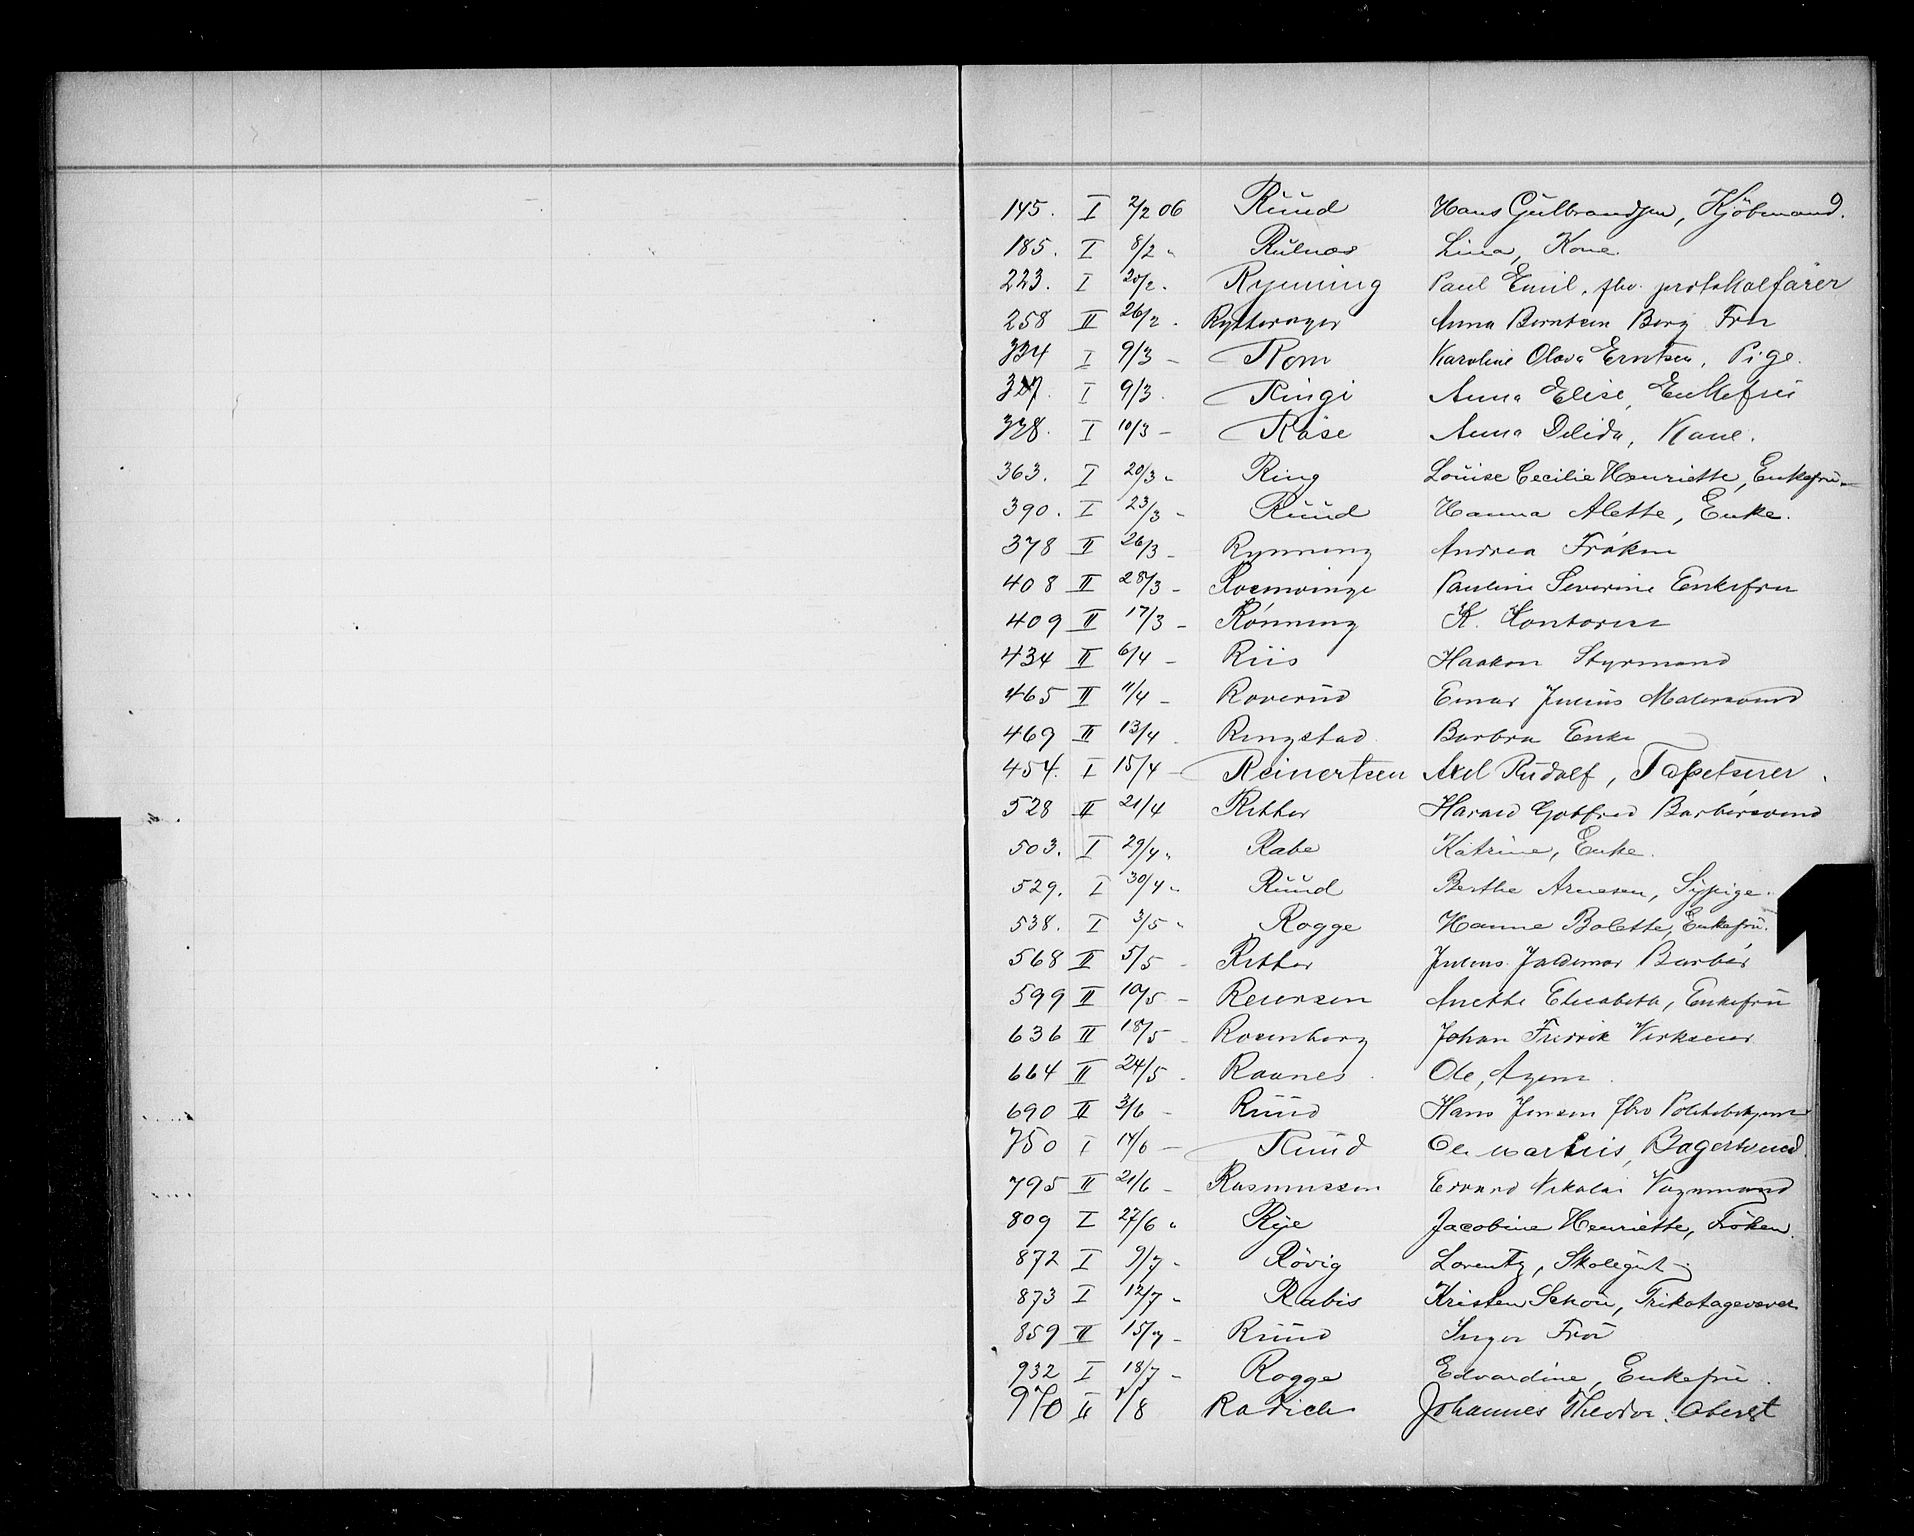 145. I 2/2 06 Ruud Hans Gulbrandsen, Kjöbmand.
185. I 8/2 " Lina, Kone.
223. I 20/2 . Rynning Paul Emil, fhv. protokolfører
258 II 26/2 . Rytterager Anna Berntsen Berg Fru
334 I 9/3 – Rom Karoline Olava Erntsen, Pige.
I 9/3 . Ringi Anna Elise, Enkefru
338. I 10/3 – Råse Anna Delida, Kone.
363. I 20/3 " Ring Louise Cecilie Henriette, Enkefru
390. I 23/3 " Ruud Hanna Alette, Enke.
378 II 26/3 – Rynning Andrea Frøken
408 II 28/3 – Rosenvinge Pauline Severine Enkefru
409 II 17/3 – Rønning K. Kontorist
434 II 6/4 – Riis Haakon Styrmand
465 II 11/4 – Roverud Einar Julius Malersvend
469 II 13/4 . Ringstad Barbra Enke
454. I 15/4 – Reinertsen Axel Rudolf, Tapetserer.
528 II 21/4 Ritter Harald Gotfred Barbersvend
503. I 29/4 " Rabe Katrine, Enke.
529. I 30/4 " Ruud Berthe Arnesen, Sypige.
538. I 3/5 " Rogge Hanne Bolette, Enkefru.
568 II 5/5 – Ritter Julius Valdemar Barbér
599 II 10/5 – Reiersen Anette Elisabeth, Enkefru
636 II 18/5 – Rosenberg Johan Fredrik Verkseier
664 II 24/5 – Raanes Ole, Agent
690 II 3/6 – Ruud Hans Jensen fhv Politibetjent
750 I 14/6 – Ruud Ole Martius, Bagersvend.
795 II 21/6 – Rasmussen Edvard Nikolai Vognmand
809 I 27/6 " Rye Jacobine Henriette, Frøken.
872 I 9/7 " Rövig Lorentz, Skolegut
873 I 12/7 " Rabis Kristen Schou, Trikotagevæver
859 II 15/7 – Ruud Inga Fru
932 I 18/7 " Rogge Edvardine, Enkefru.
970 II 1/8 Radich Johannes Theodor. Oberst